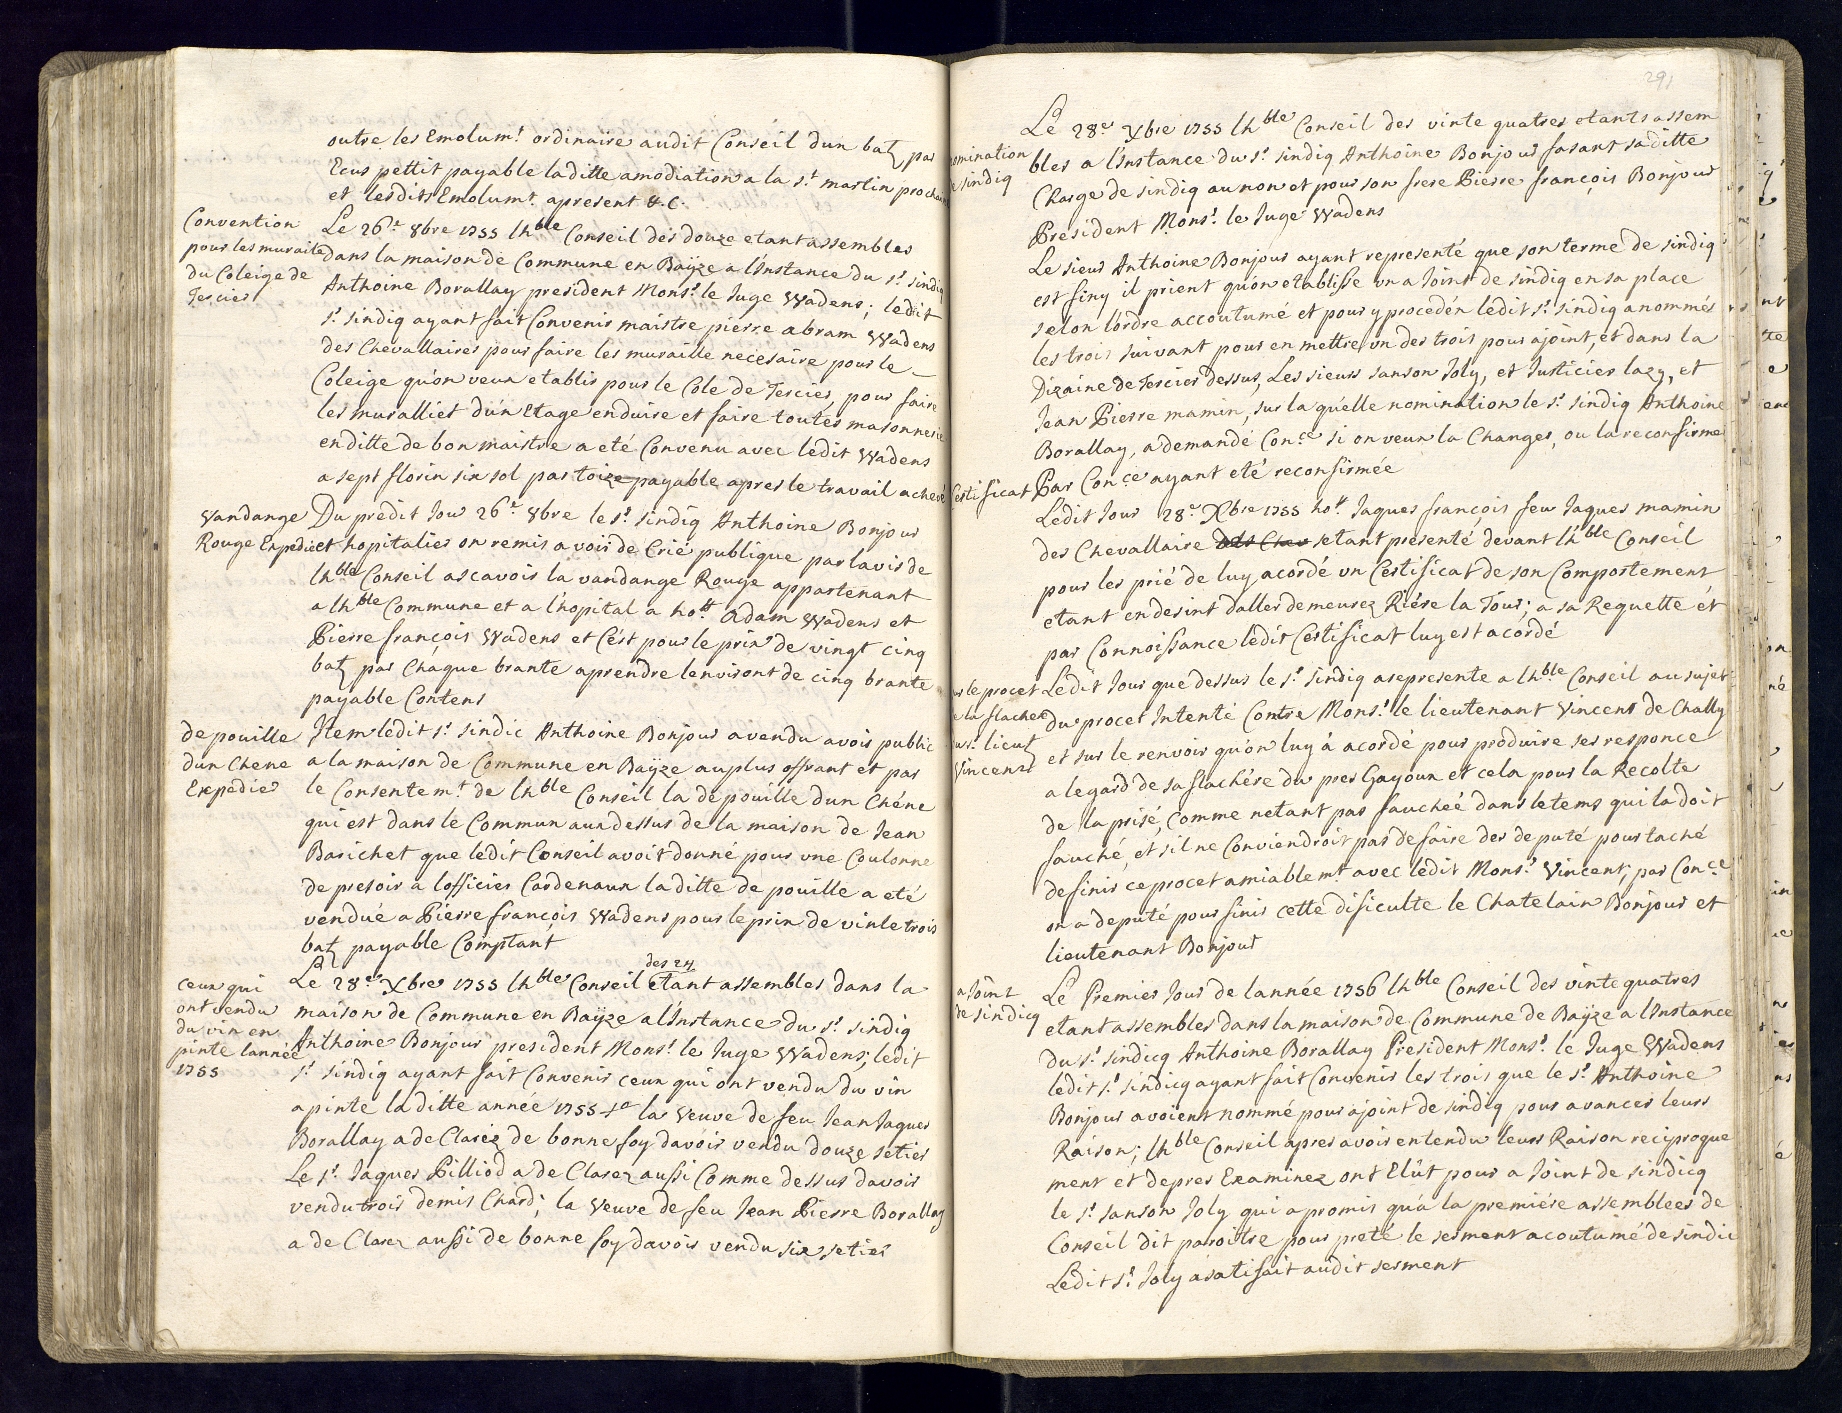 outre les Emolumt ordinaire audit Conseil dun batz par
Ecus pettit payable laditte amodiation a la st martin prochain
et lesdits Emolumt apresent &.C.
Convention
pour les muraille
du Coleige de
Tercier
Le 26e 8bre 1755 lhble Conseil des douze etant assembles
dans la maison de Commune en Baÿze a l'Instance du sr sindiq
Anthoine Borallay president Monsr le Juge Wadens; ledit
sr sindiq ayant fait Convenir maistre pierre abram Wadens
des Chevallaires pour faire les muraille necesaire pour le
Coleige qu'on veux etablir pour le Cole de Tercier, pour faire
les muralliet d'un Etage enduire et faire toutes masonnerie
enditte de bon maistre a eté Convenu avec ledit Wadens
a sept florin six sol par toize payable apres le travail achevé
Vandange
Rouge Expediee
Du prédit Jour 26e 8bre le sr sindiq Anthoine Bonjour
et hopitalier on remis a voir de Crié publique par lavis de
lhble Conseil ascavoir la vandange Rouge appartenant
a lhble Commune et a l'hopital a hott Adam Wadens et
Pierre françois Wadens et C'est pour le prix de vingt cinq
batz par Chaque brante aprendre lenviront de cinq brante
payable Contens
depouille
dun Chene
Expedié
Item ledit sr sindic Anthoine Bonjour avendu avoir public
a la maison de Commune en Baÿze auplus offrant et par
le Consentemt de lhble Conseil la depouille dun Chéne
qui est dans le Commun aux dessus de la maison de Jean
Barichet que ledit Conseil avoit donné pour vne Coulonne
de presoir a lofficier Cardenaux laditte depouille a eté
vendué a Pierre françois Wadens pour le prix de vinte trois
batz payable Comptant
ceux qui
ont vendu
du vin en
pinte lannée
1755
des 24
Le 28e Xbre 1755 lhble Conseil etant assembles dans la
maison de Commune en Baÿze a l'Instance du sr sindiq
Anthoine Bonjour president Monsr le Juge Wadens; ledit
sr sindiq ayant fait Convenir ceux qui ont vendu du vin
apinte laditte année 1755 la Veuve de feu Jean Jaques
Borallay a de Clarez de bonne foy davoir vendu douze setier
Le sr Jaques Pilliod a de Clarez aussi Comme dessus davoir
vendu trois demis Chard; la Veuve de feu Jean Pierre Borallay
a de Clarez aussi de bonne foy davoir vendu six setier
291
nomination
de sindiq
Le 28e Xbre 1755 lhble Conseil des vinte quatres etants assem
bles a l'Instance du sr sindiq Anthoine Bonjour fasant saditte
Charge de sindiq au non et pour son frere Pierre françois Bonjour
President Monsr le Juge Wadens
Le sieur Anthoine Bonjour ayant representé que son terme de sindiq
est finy il prient qu'on etablisse vn a Joint de sindiq en sa place
selon lordre accoutumé et pour y proceder ledit sr sindiq a nommés
les trois suivant pour en mettre vn des trois pour ajoint, et dans la
Dizaine de Tercier dessus, Les sieurs sanson Joly, et Justicier lazy, et
Jean Pierre mamin, sur la quelle nomination le sr sindiq Anthoine
Borallay, a demandé Conce si on veux la Changer, ou la reconfirme
Par Conce ayant eté reconfirmée
Certificat
Ledit Jour 28e Xbre 1755 hott Jaques françois feu Jaques mamin
des Chevallaire des Chev setant presenté devant lhble Conseil
pour les prié de luy acordé vn Certificat de son Comportement
etant endesint d'aller demeurez Riére la Tour; a sa Requette et
par Connoissance ledit Certificat luy est acordé
sur le procet
de la flachere
Monsr lieut
Vincent
Ledit Jour que dessus le sr sindiq a represente a lhble Conseil au sujet
du procet Intenté Contre Monsr le lieutenant Vincent de Chally
et sur le renvoir qu'on luy à acordé pour produire ses responce
a legard de sa flachére du prez Gayoux et cela pour la Recolte
de la prisé, Comme netant pas faucheé dans le tems qui la doit
fauché, et sil ne Conviendroit pas de faire des deputé pour taché
de finir ce procet amiablemt avec ledit Monsr Vincent; par Conce
on a deputé pour finir cette dificulte le Chatelain Bonjour et
lieutenant Bonjour
a Joint
de sindicq
Le Premier Jour de lannée 1756 lhble Conseil des vinte quatres
etant assembles dans la maison de Commune de Baÿze a l'Instance
du sr sindicq Anthoine Borallay President Monsr le Juge Wadens
ledit sr sindicq ayant fait Convenir les trois que le sr Anthoine
Bonjour avoient nommé pour ajoint de sindiq pour avancer leurs
Raison; lhble Conseil apres avoir entendu leurs Raison reciproque
ment et depres Examinez ont Elût pour a Joint de sindicq
le sr sanson Joly qui a promis qu'á la premiére assemblees de
Conseil dit paroitre pour preté le serment acoutumé de sindic
Ledit sr Joly a satisfait audit serment